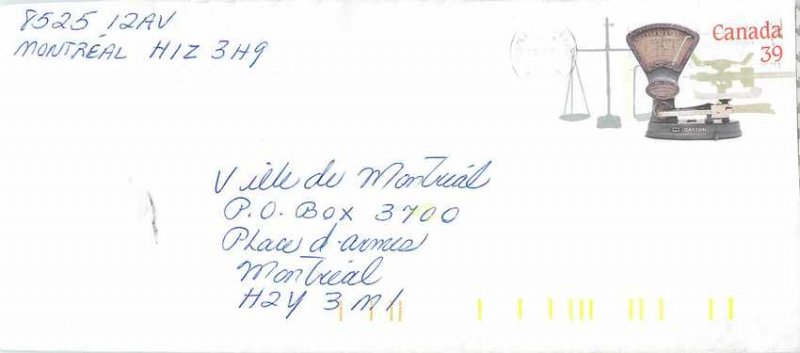 8525 12AV
MONTRÉAL H1Z 3H9
Canada
39
DAYTON
Ville de Montréal
P.O. Box 3700
Place d'armes
Montréal
H2Y 3M1